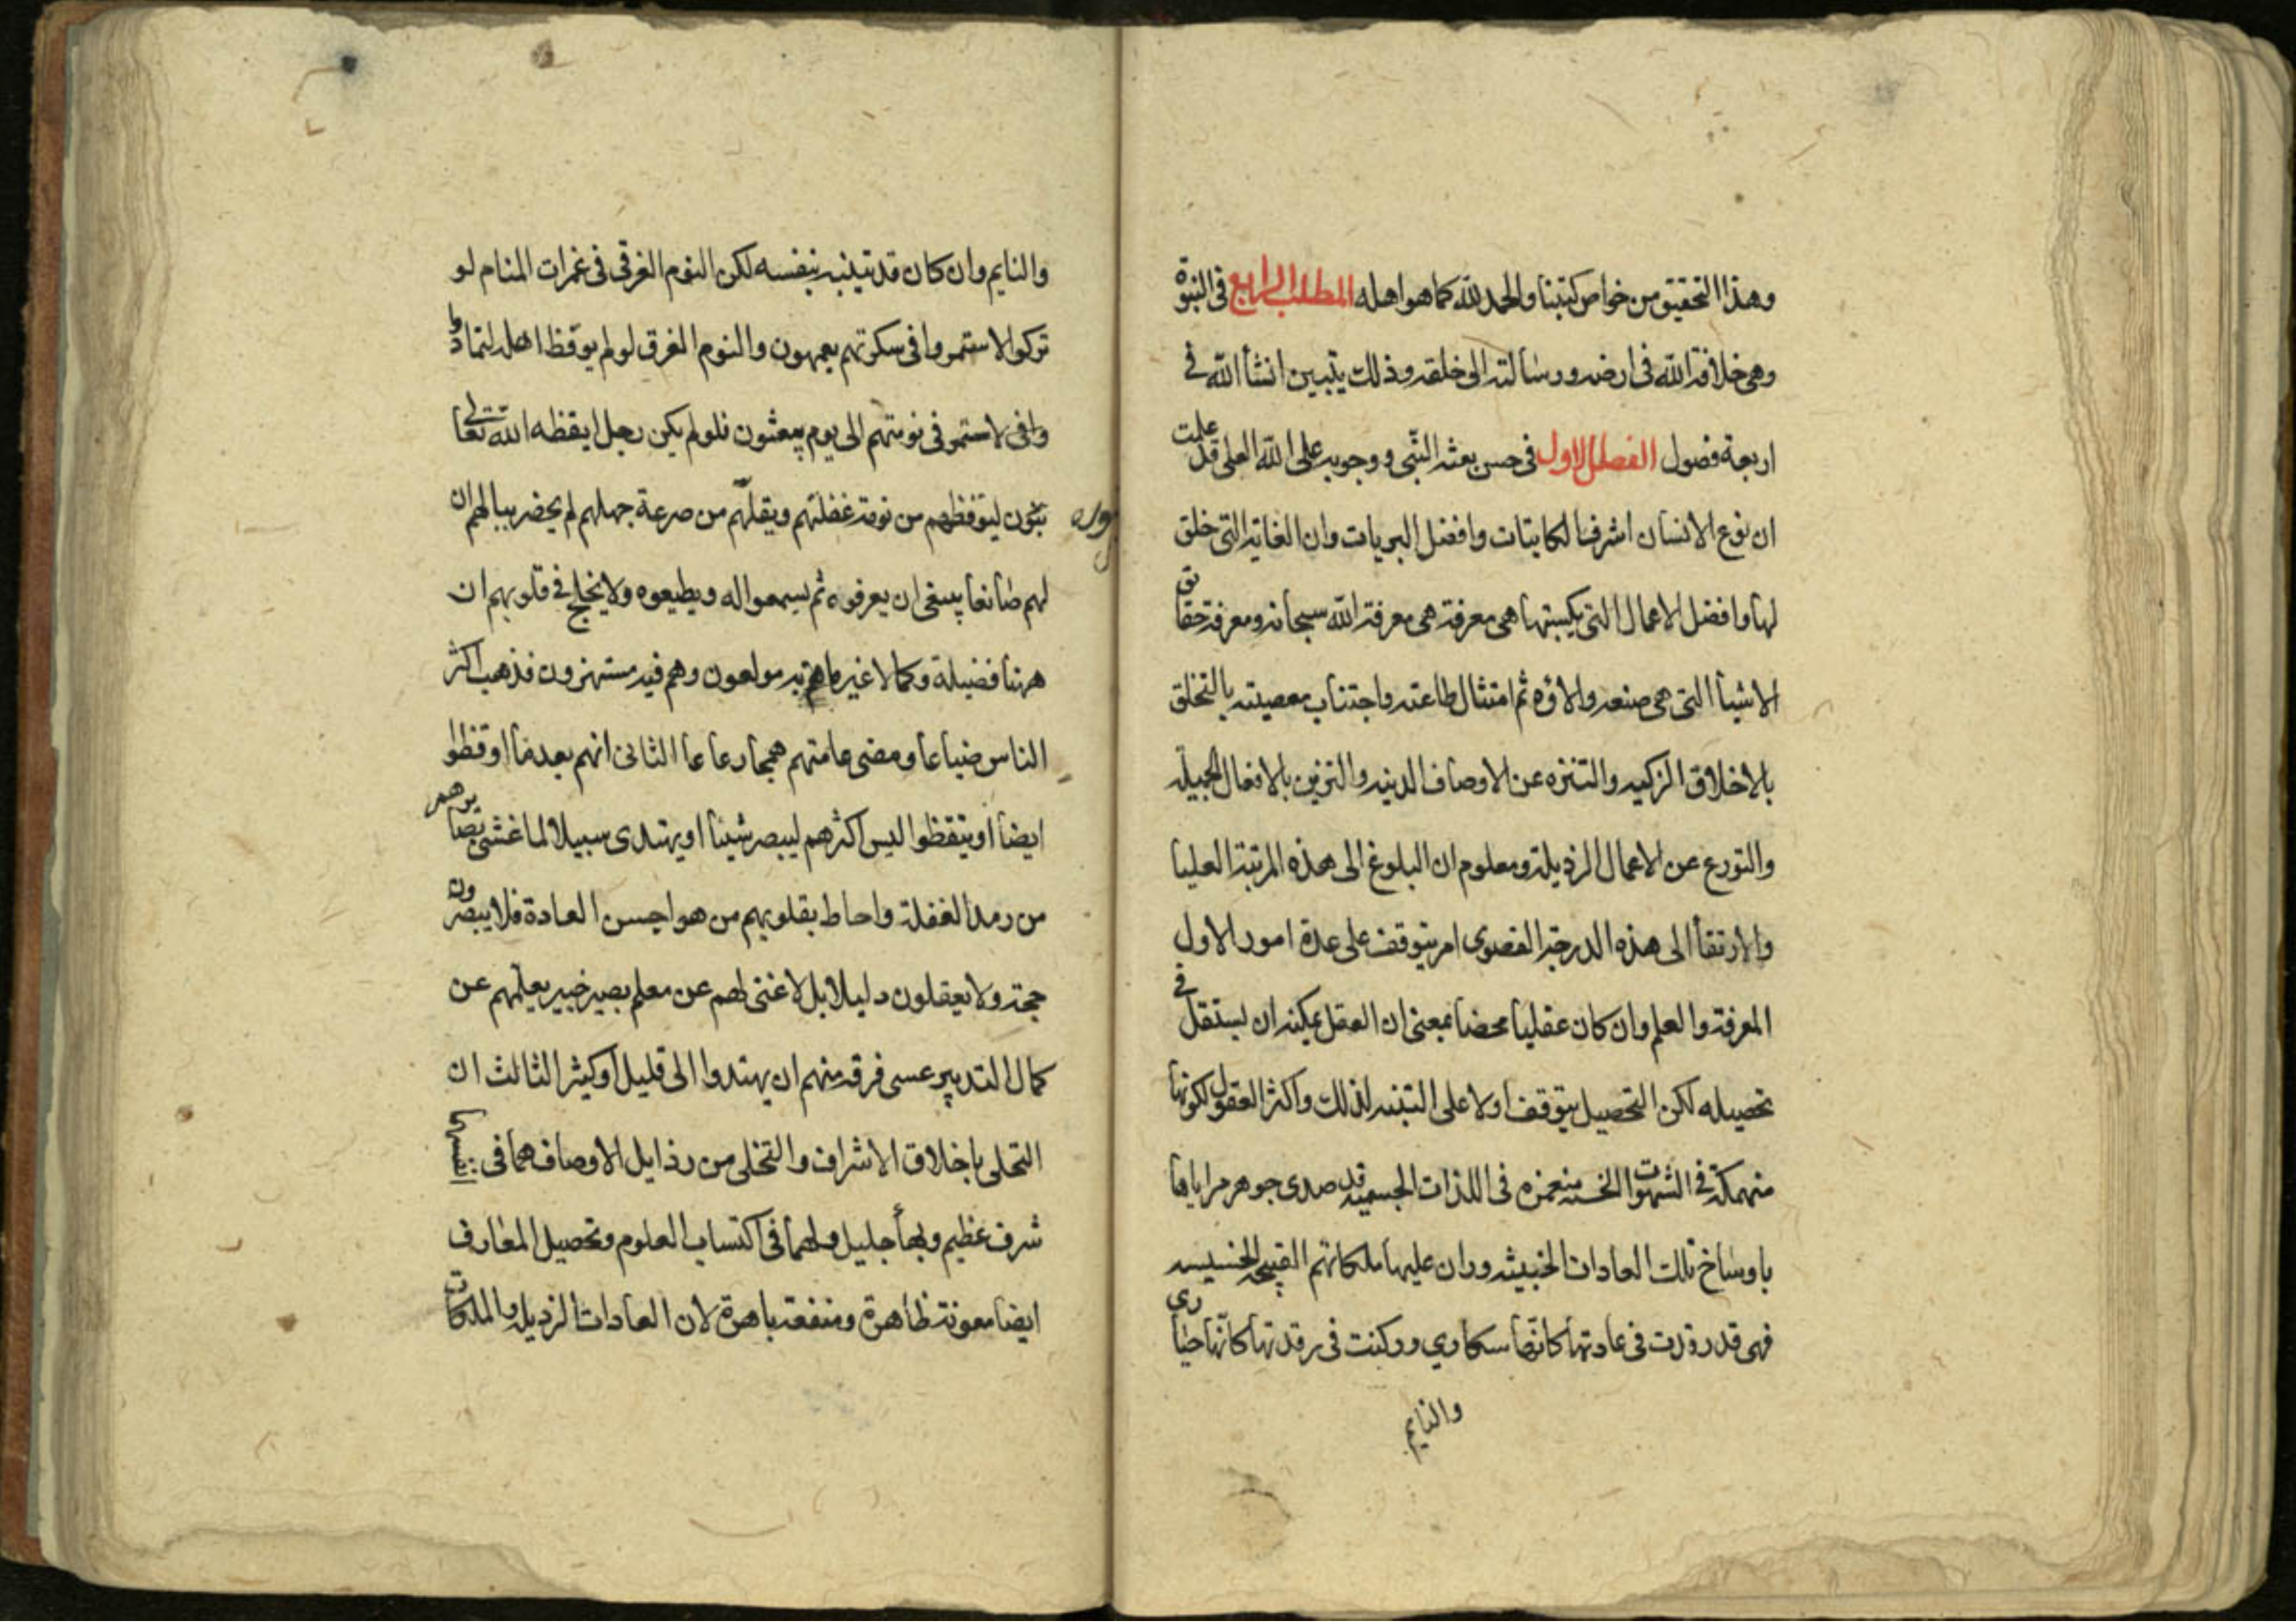 وهذا التحقيق من خواص كتبنا والحمد لله كما هو اهله المطلب الرابع فى النبوة
وهى خلافة الله فى ارضه ورسالته الى خلقه وذلك يتبين انشأ الله في
اربعة فصول الفصل الاول فى حسن بعثه النبى ووجوبه على الله العلى قد علمت
ان نوع الانسان اشرف الكاينات وافضل البريات وان الغاية التى خلق
لها وافضل الاعمال التى يكسبتها هى معرفة هى معرفة الله سبحانه ومعرفة حقايق
الاشيأ التى هى صنعه والاؤه ثم امتثال طاعته واجتناب معصيته بالتخلق
بالاخلاق الزكيه والتنزه عن الاوصاف الدنيه والتزين بالافعال الجميله
والتورع عن الاعمال الرذيلة ومعلوم ان البلوغ الى هذه المرتبة العليا
والارتقأ الى هذه الدرجة القصوى امر يتوقف على عدة امور الاول
المعرفة والعلم وان كان عقليا محضا بمعنى ان العقل يمكنه ان يستقل في
تحصيله لكن التحصيل يتوقف اولا على التنبه لذلك واكثر العقول لكونها
منهمكة في الشهوات الخسه منغمزه فى اللذات الجسميه قد صدى جوهر مراياها
باوساخ تلك العادات الخبيثه وران عليها ملكاتهم القبيحه الخسيسه
فهى قد رقدت فى عادتها كانها سكاوي وركنت فى رقدتها كانها حيارى
والنايم
والنايم وان كان قد تينبه بنفسه لكن النوم الغرقى فى غمرات المنام لو
تركوا لاستمروا فى سكرتهم يعمهون والنوم المغرق لو لم يوقظ اهله لتمادوا
وافى لاستمر فى نومتهم الى يوم يبعثون فلو لم يكن رجل ايقظه الله تعالى
بنون ليتوقظهم من نومة غفلتهم ويقلهم من صرعة جهلهم لم يحضر ببالهم ان
لهم صانعا ينبغى ان يعرفوه ثم يسمعوا له ويطيعوه ولا يختلج في قلوبهم ان
ههنا فضيلة وكمالا غير ما هم به مولعون وهم فيه مستهزون فذهب اكثر
الناس ضياعا ومضى عامتهم همجا رعاعا الثانى انهم بعد ما اوقظوا
ايضا او يتقظوا ليس اكثرهم ليبصر شيئا او يهتدى سبيلا لما غشى بصايرهم
من رمد الغفلة واحاط بقلوبهم من هواجس العادة فلا يبصرون
حجة ولا يعقلون دليلا بل لا غنى لهم عن معلم بصير خبير يعلمهم عن
كمال التدبير عسى فرقة منهم ان يهتدوا الى قليل او كثير الثالث ان
التحلى باخلاق الاشراف والتخلى من رذايل الاوصاف هما فى انفسهما
شرف عظيم وبهأ جليل ولهما فى اكتساب العلوم وتحصيل المعارف
ايضا معونة ظاهرة ومنفعة باهرة لان العادات الرذيله والملكات